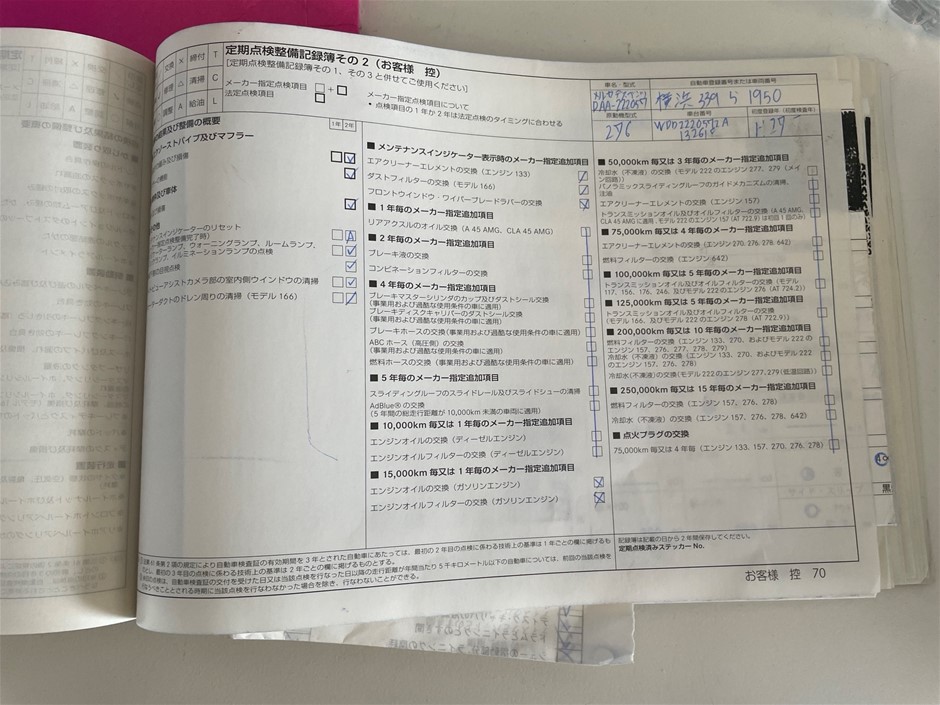 定期点検整備記録簿その2（お客様 控）
［定期点検整備記録簿その1、その3と併せてご使用ください］
交換 × 締付 T
清掃 C
給油 L
メーカー指定点検項目 □+□
法定点検項目 □
メーカー指定点検項目について
・点検項目の1年か2年は法定点検のタイミングに合わせる
車名・型式
自動車登録番号または車両番号
DAA-222057
横浜 339 5 1950
原動機型式
車台番号
初度登録年（初度検査年）
276
及び整備の概要
1年 2年
ゾーストパイプ及びマフラー
み及び損傷
インジケーターのリセット
ターランプ、ウォーニングランプ、ルームランプ、
ランプ、イルミネーションランプの点検
の目視点検
ビューアシストカメラ部の室内側ウインドウの清掃
ーダクトのドレン周りの清掃（モデル 166）
■ メンテナンスインジケーター表示時のメーカー指定追加項目
エアクリーナーエレメントの交換（エンジン 133）
ダストフィルターの交換（モデル 166）
フロントウインド・ワイパーブレードラバーの交換
■ 1年毎のメーカー指定追加項目
リアアクスルのオイル交換（A 45 AMG、CLA 45 AMG）
■ 2年毎のメーカー指定追加項目
ブレーキ液の交換
コンビネーションフィルターの交換
■ 4年毎のメーカー指定追加項目
ブレーキマスターシリンダのカップ及びダストシール交換
（事業用および過酷な使用条件の車に適用）
ブレーキディスクキャリパーのダストシール交換
（事業用および過酷な使用条件の車に適用）
ブレーキホースの交換（事業用および過酷な使用条件の車に適用）
ABC ホース（高圧側）の交換
（事業用および過酷な使用条件の車に適用）
燃料ホースの交換（事業用および過酷な使用条件の車に適用）
■ 5年毎のメーカー指定追加項目
スライディングルーフのスライドレール及びスライドシューの清掃
AdBlue® の交換
（5年間の総走行距離が 10,000km 未満の車両に適用）
■ 10,000km 毎又は1年毎のメーカー指定追加項目
エンジンオイルの交換（ディーゼルエンジン）
エンジンオイルフィルターの交換（ディーゼルエンジン）
■ 15,000km 毎又は1年毎のメーカー指定追加項目
エンジンオイルの交換（ガソリンエンジン）
エンジンオイルフィルターの交換（ガソリンエンジン）
■ 50,000km 毎又は3年毎のメーカー指定追加項目
冷却水（不凍液）の交換（モデル 222 のエンジン 277、279（メイン回路））
パノラミックスライディングルーフのガイドメカニズムの清掃、
注油
エアクリーナーエレメントの交換（エンジン 157）
トランスミッションオイル及びオイルフィルターの交換（A 45 AMG、
CLA 45 AMG に適用、モデル 222 のエンジン 157（AT 722.9）は初回1回のみ）
■ 75,000km 毎又は4年毎のメーカー指定追加項目
エアクリーナーエレメントの交換（エンジン 270、276、278、642）
燃料フィルターの交換（エンジン 642）
■ 100,000km 毎又は5年毎のメーカー指定追加項目
トランスミッションオイル及びオイルフィルターの交換（モデル
117、156、176、246、及びモデル 222 のエンジン 276（AT 724.2））
■ 125,000km 毎又は5年毎のメーカー指定追加項目
トランスミッションオイル及びオイルフィルターの交換
（モデル 166、及びモデル 222 のエンジン 278（AT 722.9））
■ 200,000km 毎又は10年毎のメーカー指定追加項目
燃料フィルターの交換（エンジン 133、270、およびモデル 222 の
エンジン 157、276、277、278、279）
冷却水（不凍液）の交換（エンジン 133、270、およびモデル 222 の
エンジン 157、276、278）
冷却水（不凍液）の交換（モデル 222 のエンジン 277、279（低温回路））
■ 250,000km 毎又は15年毎のメーカー指定追加項目
燃料フィルターの交換（エンジン 157、276、278）
冷却水（不凍液）の交換（エンジン 157、276、278、642）
■ 点火プラグの交換
75,000km 毎又は4年毎（エンジン 133、157、270、276、278）
記録簿は記載の日から2年間保存してください。
定期点検済みステッカー No.
条第2項の規定により自動車検査証の有効期間を3年とされた自動車にあたっては、最初の2年目の点検に係わる技術上の基準は1年ごとの欄に掲げるも
最初の3年目の点検に係わる技術上の基準は2年ごとの欄に掲げるものとする。
の点検は、自動車検査証の交付を受けた日又は当該点検を行なった日以降の走行距離が年間当たり5千キロメートル以下の自動車については、前回の当該点検を
うべきこととされる時期に当該点検を行なわなかった場合を除き、行なわないことができる。
お客様 控 70